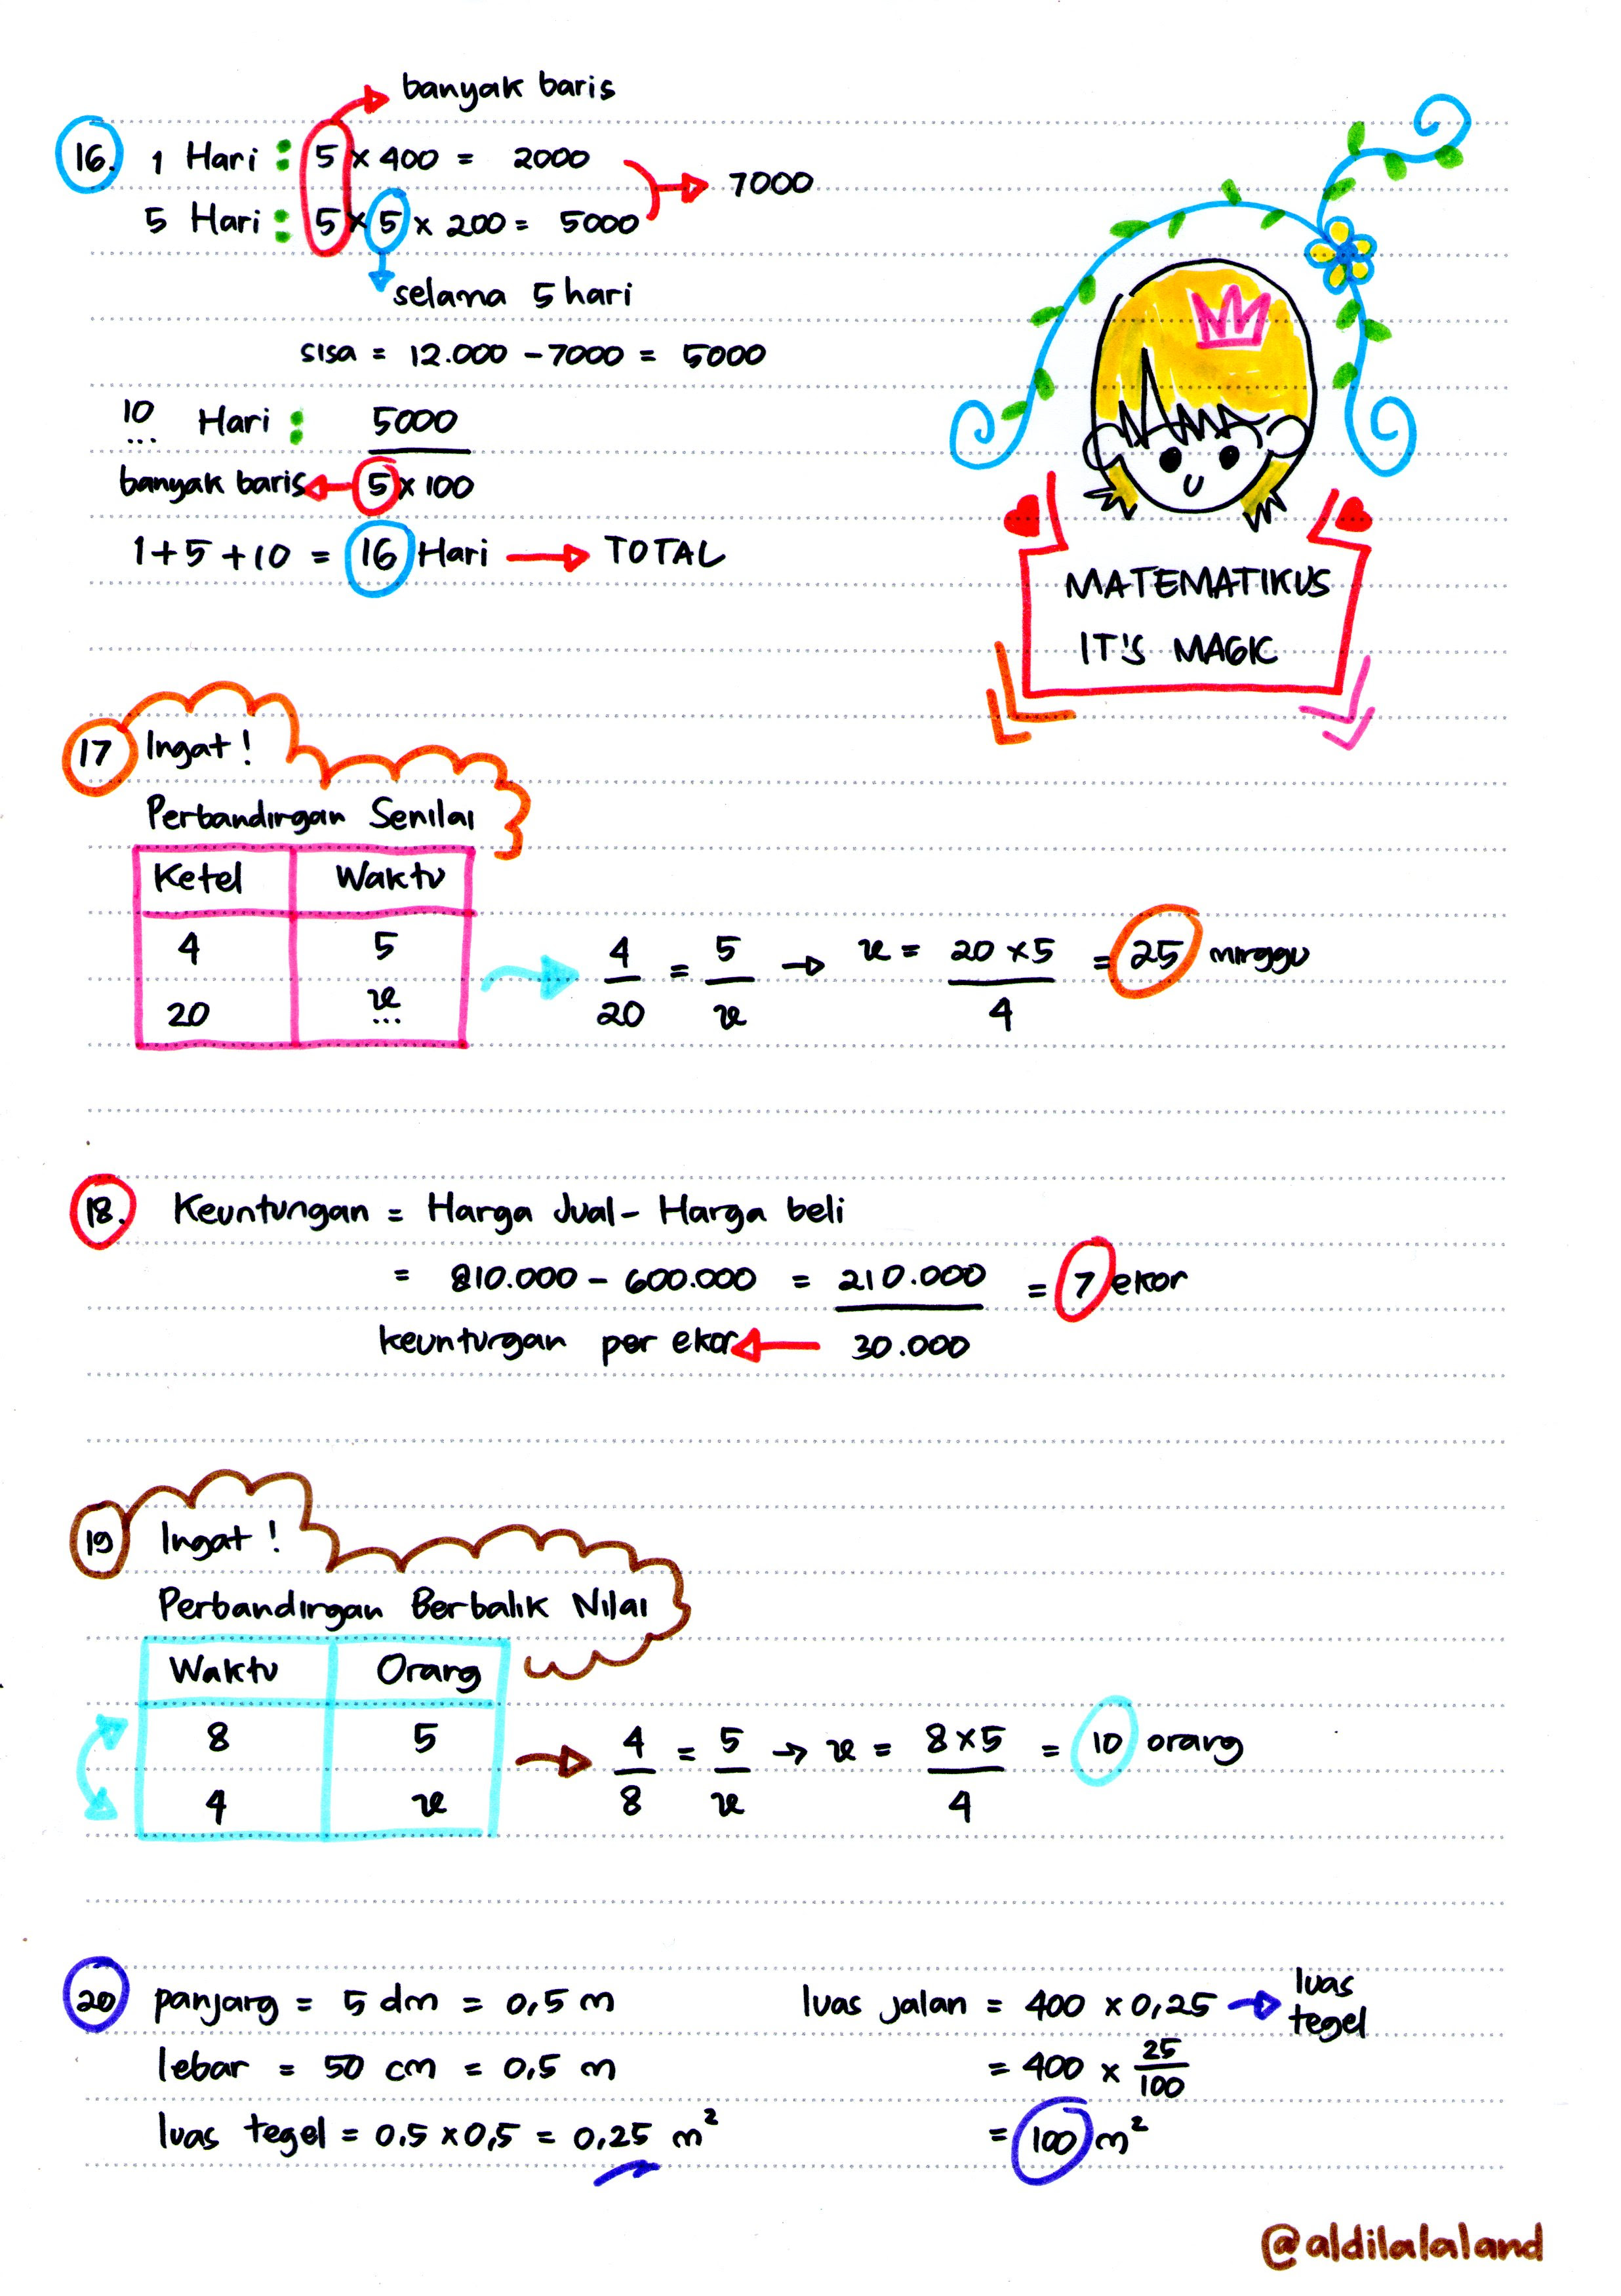 banyak baris
16. 1 Hari : 5 × 400 = 2000
7000
5 Hari : 5 × 5 × 200 = 5000
selama 5 hari
sisa = 12.000 - 7000 = 5000
10 ... Hari : 5000
banyak baris 5 × 100
1 + 5 + 10 = 16 Hari → TOTAL
MATEMATIKUS
IT'S MAGIC
17 Ingat !
Perbandingan Senilai
Ketel Waktu
4 5
20 x ...
4/20 = 5/x → x = 20 × 5 / 4 = 25 minggu
18. Keuntungan = Harga Jual - Harga beli
= 810.000 - 600.000 = 210.000 = 7 ekor
keuntungan per ekor ← 30.000
19 Ingat !
Perbandingan Berbalik Nilai
Waktu Orang
8 5
4 x
4/8 = 5/x → x = 8 × 5 / 4 = 10 orang
20 panjang = 5 dm = 0,5 m
lebar = 50 cm = 0,5 m
luas tegel = 0,5 × 0,5 = 0,25 m²
luas jalan = 400 × 0,25 → luas tegel
= 400 × 25/100
= 100 m²
@aldilalaland